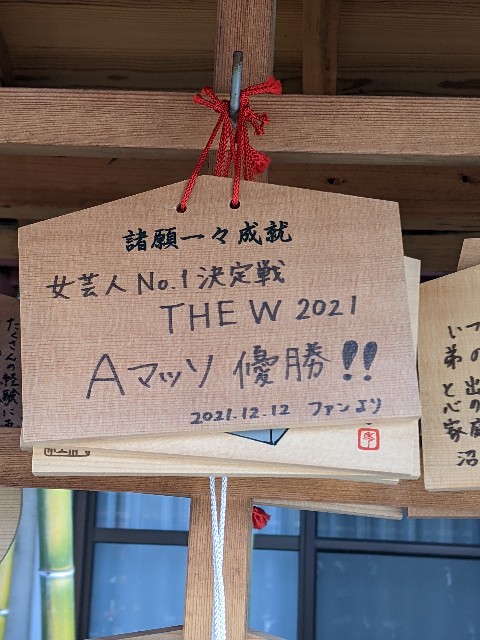 諸願一々成就
女芸人No.1決定戦
THE W 2021
Aマッソ 優勝!!
2021.12.12 ファンより
たくさんの経験に